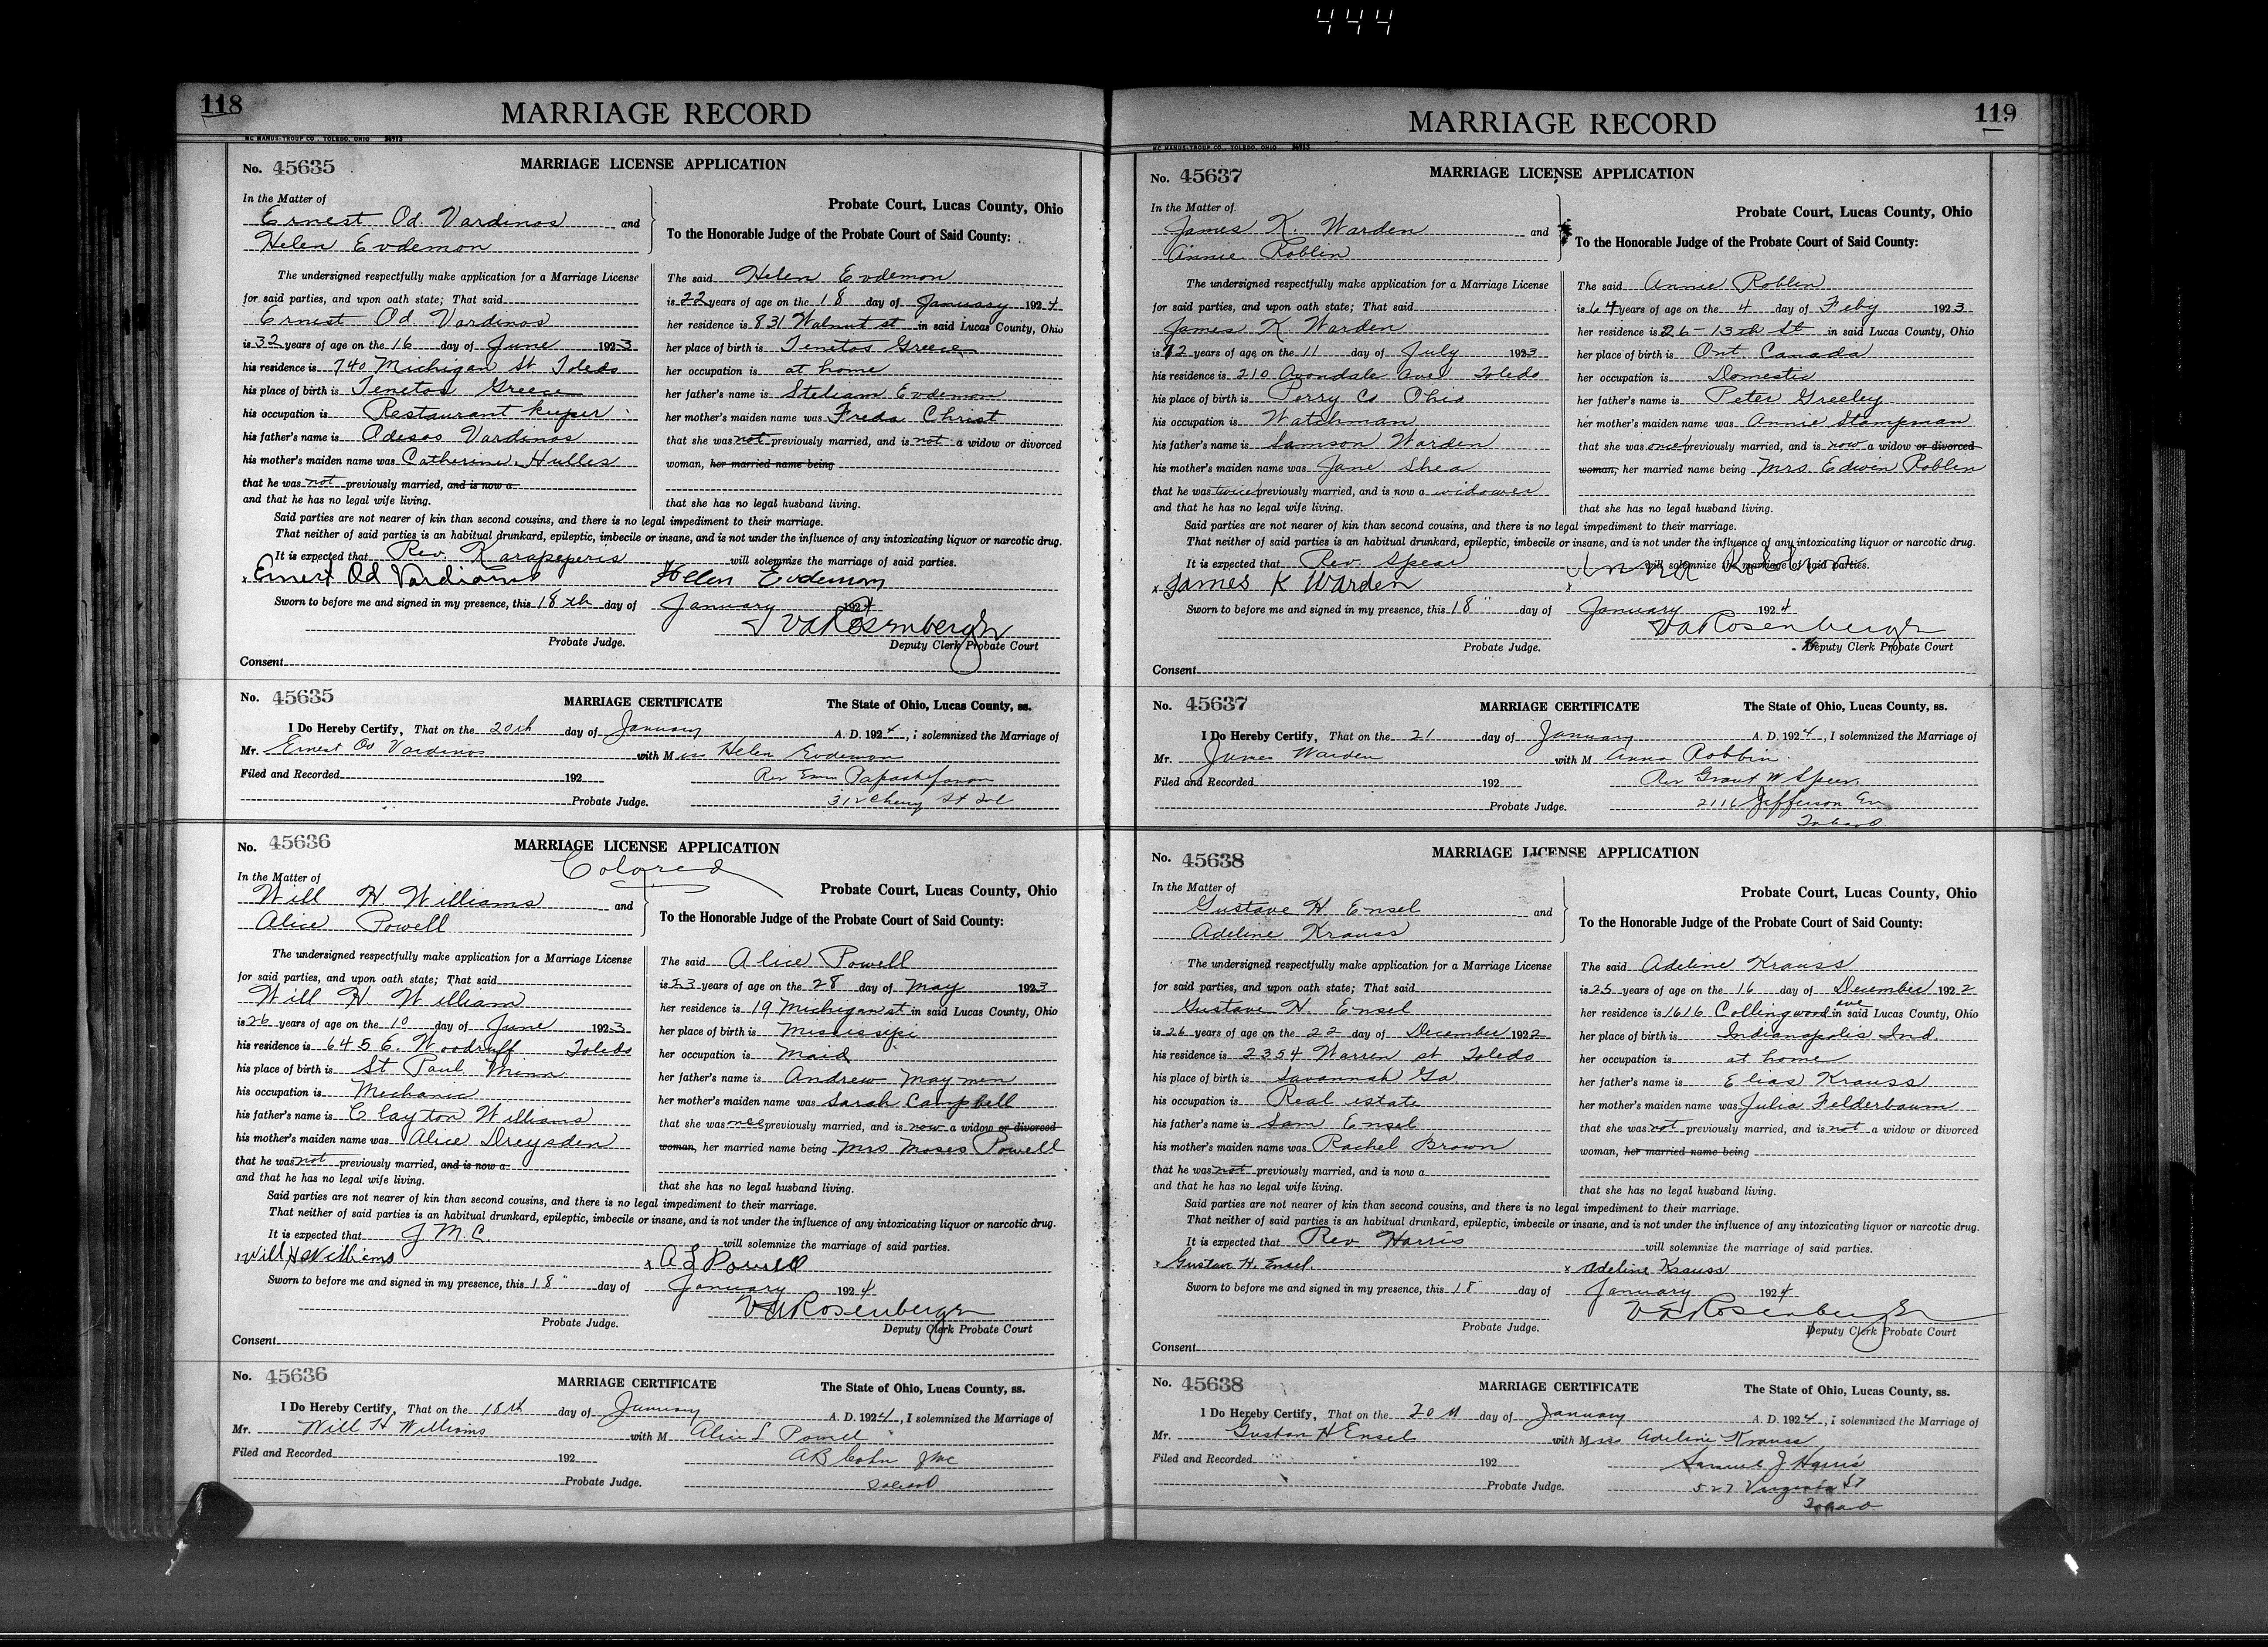 444
118
MARRIAGE RECORD
MC MANUS-TROUP CO., TOLEDO, OHIO 36913
No. 45635
MARRIAGE LICENSE APPLICATION
In the Matter of
Ernest Od. Vardinos and
Helen Evdemon
Probate Court, Lucas County, Ohio
To the Honorable Judge of the Probate Court of Said County:
The undersigned respectfully make application for a Marriage License
for said parties, and upon oath state; That said
Ernest Od. Vardinos
is 32 years of age on the 16 day of June 1923
his residence is 740 Michigan St. Toledo
his place of birth is Tenetos Greece
his occupation is Restaurant keeper
his father's name is Odesos Vardinos
his mother's maiden name was Catherine Hulles
that he was not previously married, and is now a
and that he has no legal wife living.
The said Helen Evdemon
is 22 years of age on the 18 day of January 1924
her residence is 831 Walnut st in said Lucas County, Ohio
her place of birth is Tenetos Greece
her occupation is at home
her father's name is Steliam Evdemon
her mother's maiden name was Freda Christ
that she was not previously married, and is not a widow or divorced
woman, her married name being
that she has no legal husband living.
Said parties are not nearer of kin than second cousins, and there is no legal impediment to their marriage.
That neither of said parties is an habitual drunkard, epileptic, imbecile or insane, and is not under the influence of any intoxicating liquor or narcotic drug.
It is expected that Rev. Karapeperis will solemnize the marriage of said parties.
x Ernest Od Helen Evdemon
Sworn to before me and signed in my presence, this 18th day of January 1924
V A Rosenbergh
Probate Judge. Deputy Clerk Probate Court
Consent
No. 45635
MARRIAGE CERTIFICATE
The State of Ohio, Lucas County, ss.
I Do Hereby Certify, That on the 20th day of January A. D. 1924, i solemnized the Marriage of
Mr. Ernest Od Vardinos with Miss Helen Evdemon
Filed and Recorded 192 Rev Emm
Probate Judge. 312 Cherry St Tol
No. 45636
MARRIAGE LICENSE APPLICATION
Colored
In the Matter of
Will H. Williams and
Alice Powell
Probate Court, Lucas County, Ohio
To the Honorable Judge of the Probate Court of Said County:
The undersigned respectfully make application for a Marriage License
for said parties, and upon oath state; That said
Will H. William
is 26 years of age on the 10 day of June 1923
his residence is 645 E. Woodruff Toledo
his place of birth is St Paul Minn
his occupation is Mechanic
his father's name is Clayton Williams
his mother's maiden name was Alice Dreysden
that he was not previously married, and is now a
and that he has no legal wife living.
The said Alice Powell
is 23 years of age on the 28 day of May 1923
her residence is 19 Michigan st in said Lucas County, Ohio
her place of birth is Mississipi
her occupation is Maid
her father's name is Andrew Maymen
her mother's maiden name was Sarah Campbell
that she was once previously married, and is now a widow or divorced
woman, her married name being Mrs Moses Powell
that she has no legal husband living.
Said parties are not nearer of kin than second cousins, and there is no legal impediment to their marriage.
That neither of said parties is an habitual drunkard, epileptic, imbecile or insane, and is not under the influence of any intoxicating liquor or narcotic drug.
It is expected that J M. C. will solemnize the marriage of said parties.
x Will H Williams x A L Powell
Sworn to before me and signed in my presence, this 18" day of January 1924
V A Rosenbergh
Probate Judge. Deputy Clerk Probate Court
Consent
No. 45636
MARRIAGE CERTIFICATE
The State of Ohio, Lucas County, ss.
I Do Hereby Certify, That on the 18th day of January A. D. 1924, I solemnized the Marriage of
Mr. Will H Williams with M Alice L Powell
Filed and Recorded 192 AB Cohn JMC
Probate Judge.
119
MARRIAGE RECORD
MC MANUS-TROUP CO., TOLEDO, OHIO 36913
No. 45637
MARRIAGE LICENSE APPLICATION
In the Matter of
James K. Warden and
Annie Roblin
Probate Court, Lucas County, Ohio
To the Honorable Judge of the Probate Court of Said County:
The undersigned respectfully make application for a Marriage License
for said parties, and upon oath state; That said
James K. Warden
is 72 years of age on the 11 day of July 1923
his residence is 210 Avondale Ave Toledo
his place of birth is Perry Co Ohio
his occupation is Watchman
his father's name is Samson Warden
his mother's maiden name was Jane Shea
that he was twice previously married, and is now a widower
and that he has no legal wife living.
The said Annie Roblin
is 64 years of age on the 4 day of Feby 1923
her residence is 26-13th St in said Lucas County, Ohio
her place of birth is Ont Canada
her occupation is Domestic
her father's name is Peter Greeley
her mother's maiden name was Annie Stampman
that she was once previously married, and is now a widow or divorced
woman, her married name being Mrs. Edwin Roblin
that she has no legal husband living.
Said parties are not nearer of kin than second cousins, and there is no legal impediment to their marriage.
That neither of said parties is an habitual drunkard, epileptic, imbecile or insane, and is not under the influence of any intoxicating liquor or narcotic drug.
It is expected that Rev. Spear will solemnize the marriage of said parties.
x James K Warden x Anna
Sworn to before me and signed in my presence, this 18" day of January 1924
V A Rosenbergh
Probate Judge. Deputy Clerk Probate Court
Consent
No. 45637
MARRIAGE CERTIFICATE
The State of Ohio, Lucas County, ss.
I Do Hereby Certify, That on the 21 day of January A. D. 1924, I solemnized the Marriage of
Mr. James Warden with M Anna Robbin
Filed and Recorded 192 Rev Grant W Speer
Probate Judge. 2116 Jefferson
No. 45638
MARRIAGE LICENSE APPLICATION
In the Matter of
Gustave H. Ensel and
Adeline Krauss
Probate Court, Lucas County, Ohio
To the Honorable Judge of the Probate Court of Said County:
The undersigned respectfully make application for a Marriage License
for said parties, and upon oath state; That said
Gustave H. Ensel
is 26 years of age on the 22 day of December 1922
his residence is 2354 Warren st Toledo
his place of birth is Savannah Ga.
his occupation is Real estate
his father's name is Sam Ensel
his mother's maiden name was Rachel Brown
that he was not previously married, and is now a
and that he has no legal wife living.
The said Adeline Krauss
is 25 years of age on the 16 day of December 1922
her residence is 1616 Collingwood ave in said Lucas County, Ohio
her place of birth is Indianapolis Ind.
her occupation is at home
her father's name is Elias Krauss
her mother's maiden name was Julia Felderbaum
that she was not previously married, and is not a widow or divorced
woman, her married name being
that she has no legal husband living.
Said parties are not nearer of kin than second cousins, and there is no legal impediment to their marriage.
That neither of said parties is an habitual drunkard, epileptic, imbecile or insane, and is not under the influence of any intoxicating liquor or narcotic drug.
It is expected that Rev. Harris will solemnize the marriage of said parties.
x Gustave H. Ensel. x Adeline Krauss
Sworn to before me and signed in my presence, this 18" day of January 1924
V A Rosenbergh
Probate Judge. Deputy Clerk Probate Court
Consent
No. 45638
MARRIAGE CERTIFICATE
The State of Ohio, Lucas County, ss.
I Do Hereby Certify, That on the 20th day of January A. D. 1924, i solemnized the Marriage of
Mr. Gustav H Ensel with Miss Adeline Krauss
Filed and Recorded 192 Samuel J Harris
Probate Judge. 527 Virginia St